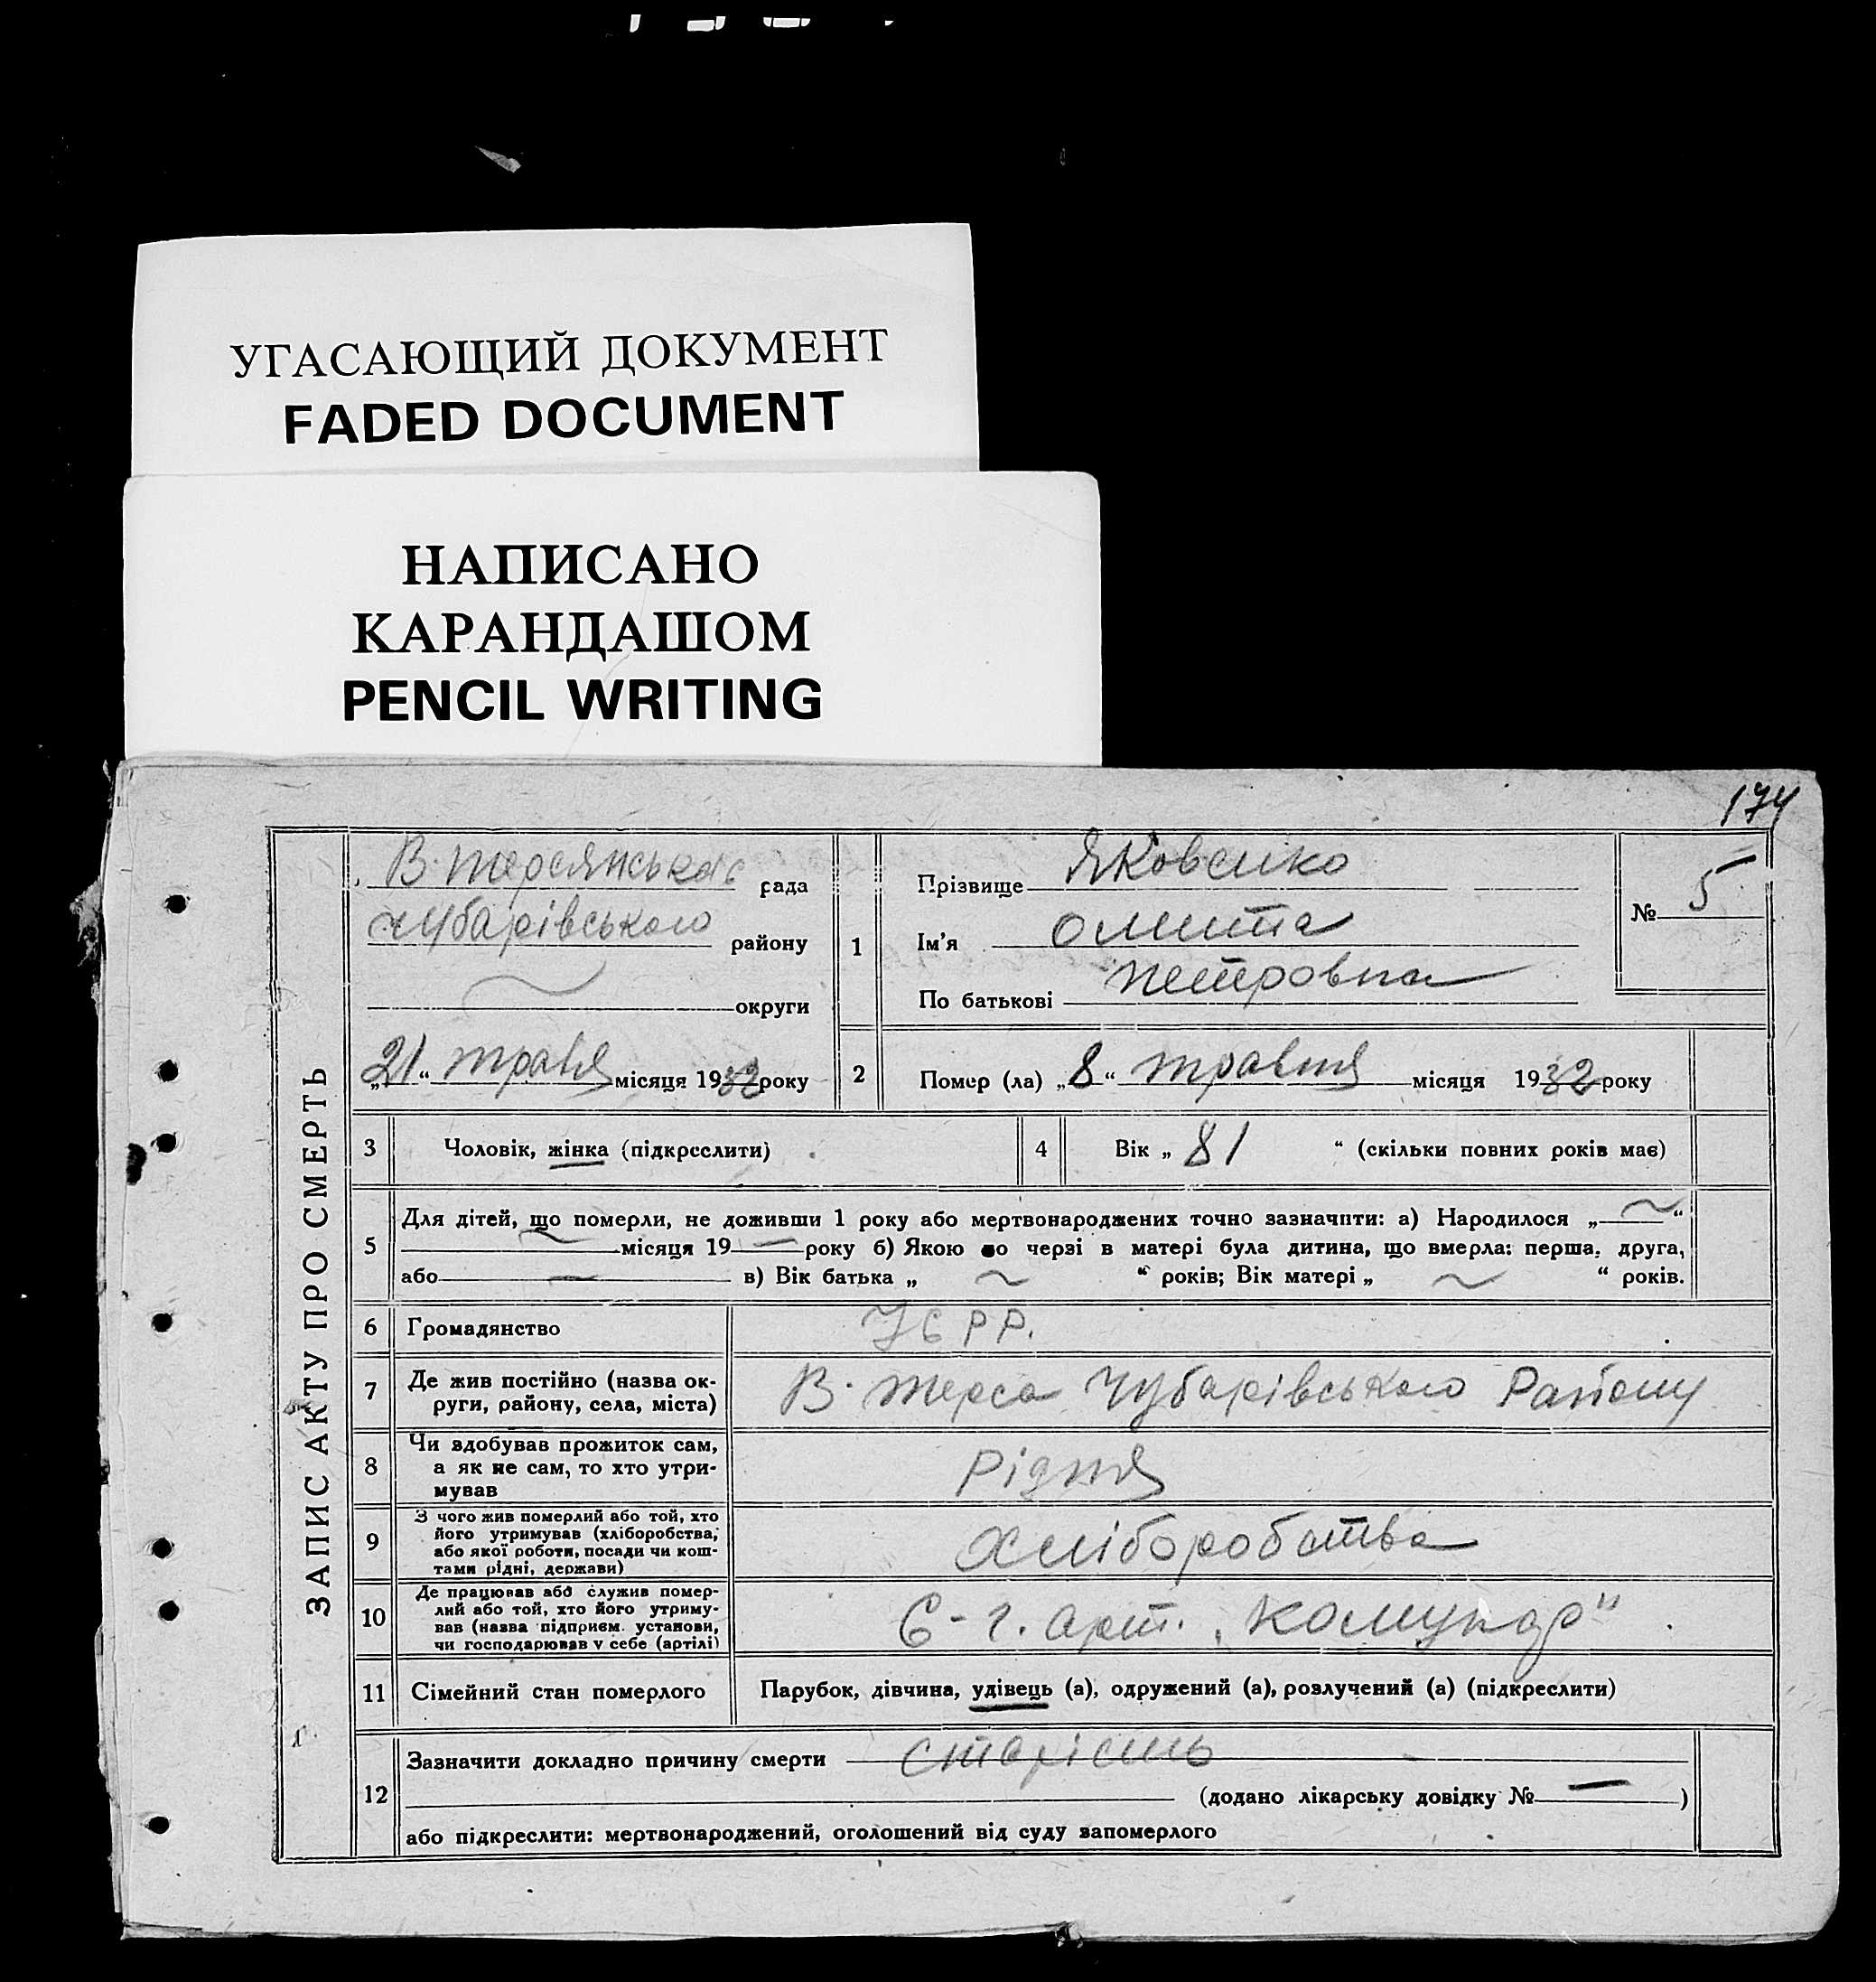 УГАСАЮЩИЙ ДОКУМЕНТ
FADED DOCUMENT
НАПИСАНО
КАРАНДАШОМ
PENCIL WRITING
174
ЗАПИС АКТУ ПРО СМЕРТЬ
В. терсянська рада
чубарівського району
округи
„21“ травня місяця 1932 року
1
Прізвище Яковенко
Ім'я
По батькові петровна
№ 5
2
Помер (ла) „8“ травня місяця 1932 року
3
Чоловік, жінка (підкреслити)
4
Вік „ 81 “ (скільки повних років має)
5
Для дітей, що померли, не доживши 1 року або мертвонароджених точно зазначити: а) Народилося „ ~ “
~ місяця 19 — року б) Якою по черзі в матері була дитина, що вмерла: перша, друга,
або ~ в) Вік батька „ ~ “ років; Вік матері „ ~ “ років.
6
Громадянство
УСРР.
7
Де жив постійно (назва ок-
руги, району, села, міста)
В. терса Чубарівського Району
8
Чи здобував прожиток сам,
а як не сам, то хто утри-
мував
Рідня
9
З чого жив померлий або той, хто
його утримував (хліборобства,
або якої роботи, посади чи кош-
тами рідні, держави)
Хліборобства
10
Де працював або служив помер-
лий або той, хто його утриму-
вав (назва підприєм. установи,
чи господарював у себе (артілі)
С-г. арт. „Комунар"
11
Сімейний стан померлого
Парубок, дівчина, удівець (а), одружений (а), розлучений (а) (підкреслити)
12
Зазначити докладно причину смерти старість
(додано лікарську довідку № — )
або підкреслити: мертвонароджений, оголошений від суду запомерлого